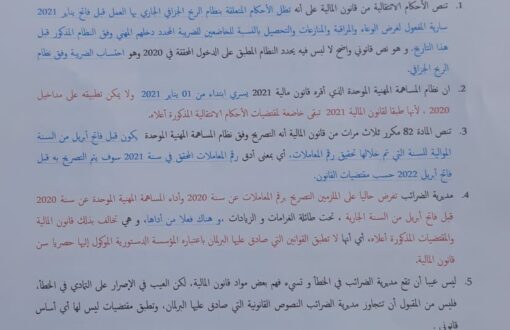 1. تنص الأحكام الانتقالية من قانون المالية على أنه تظل الأحكام المتعلقة بنظام الربح الجزافي الجاري بها العمل قبل فاتح يناير 2021
سارية المفعول لغرض الوعاء والمراقبة والمنازعات والتحصيل بالنسبة للخاضعين للضريبة المحدد دخلهم المهني وفق النظام المذكور قبل
هذا التاريخ. و هو نص قانوني واضح لا لبس فيه يحدد النظام المطبق على الدخول المحققة في 2020 وهو احتساب الضريبة وفق نظام
الربح الجزافي.
2. ان نظام المساهمة المهنية الموحدة الذي أقره قانون مالية 2021 يسري ابتداء من 01 يناير 2021 ولا يمكن تطبيقه على مداخيل
2020 ، لأنها طبقا لقانون المالية 2021 تبقى خاضعة لمقتضيات الأحكام الانتقالية المذكورة أعلاه.
3. تنص المادة 82 مكرر ثلاث مرات من قانون المالية أنه التصريح وفق نظام المساهمة المهنية الموحدة يكون قبل فاتح أبريل من السنة
الموالية للسنة التي تم خلالها تحقيق رقم المعاملات. أي بمعنى أدق رقم المعاملات المحقق في سنة 2021 سوف يتم التصريح به قبل
فاتح أبريل 2022 حسب مقتضيات القانون.
4. مديرية الضرائب تفرض حاليا على الملزمين التصريح برقم المعاملات عن سنة 2020 وأداء المساهمة المهنية الموحدة عن سنة 2020
قبل فاتح أبريل من السنة الجارية ، تحت طائلة الغرامات و الزيادات ، و هناك فعلا من أداها. و هي تخالف بذلك قانون المالية
والمقتضيات المذكورة أعلاه. أي أنها لا تطبق القوانين التي صادق عليها البرلمان باعتباره المؤسسة الدستورية الموكول إليها حصريا سن
قانون المالية.
5. ليس عيبا أن تقع مديرية الضرائب في الخطأ و تسيء فهم بعض مواد قانون المالية. لكن العيب في الإصرار على التمادي في الخطأ.
فليس من المقبول أن تتجاوز مديرية الضرائب النصوص القانونية التي صادق عليها البرلمان. وتطبق مقتضيات ليس لها أي أساس
قانوني.